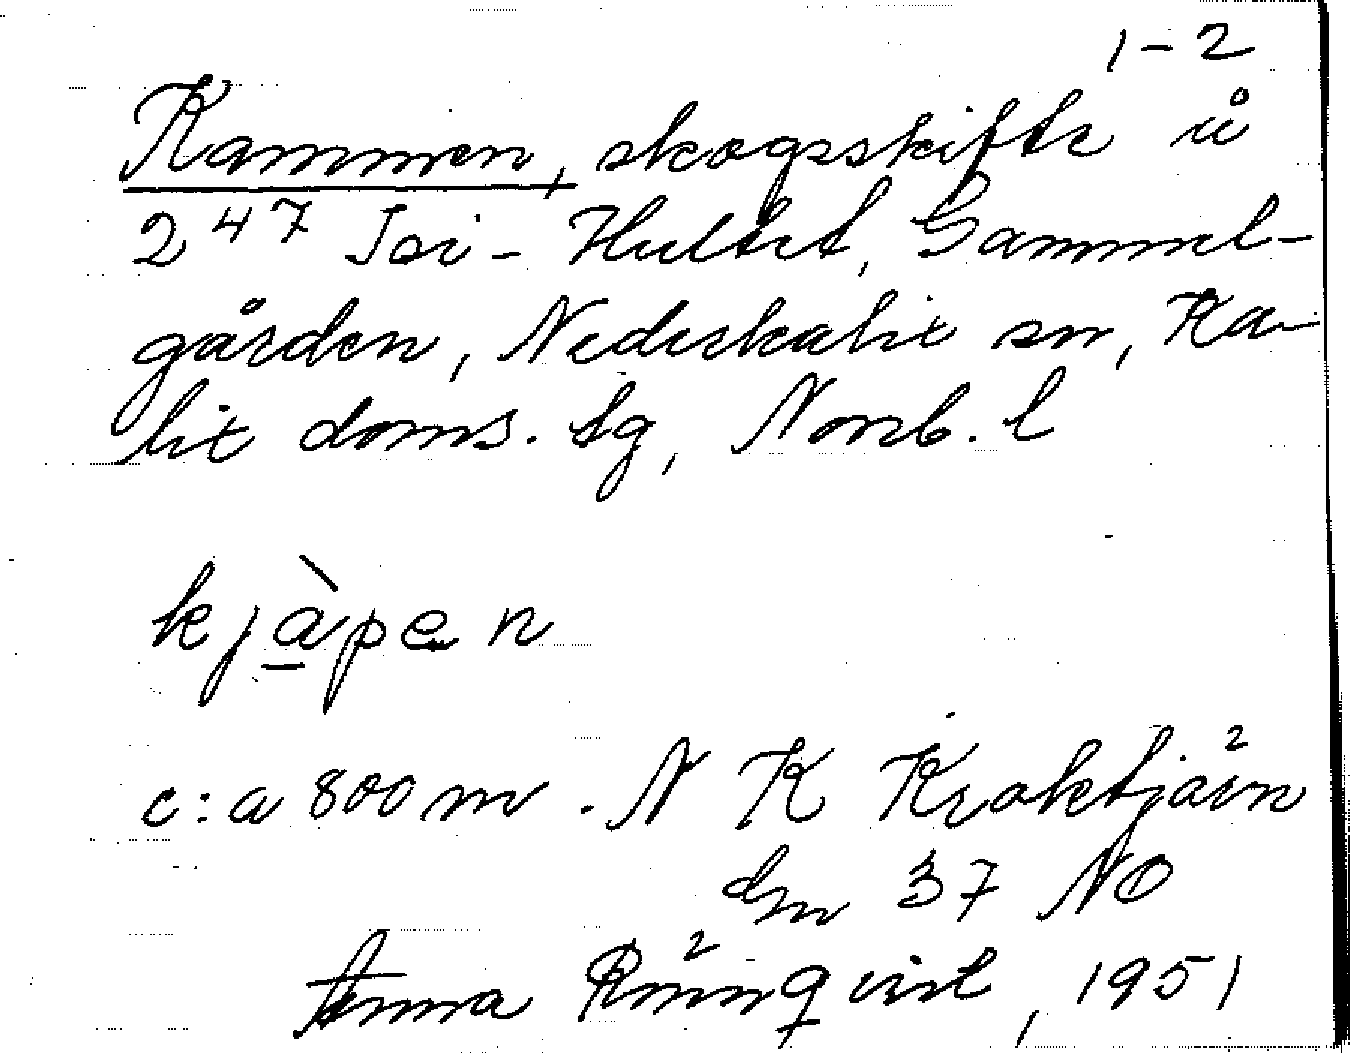 1-2
Kammen, skogsskifte å
2 47 Tor-Hultet, Gammel-
gården, Nederkalix sn, Ka-
lix doms. tg, Norrb. l
kjàpen
c:a 800 m . N K Kroktjärn
Gm 37 NO
Anna Rönnqvist, 1951